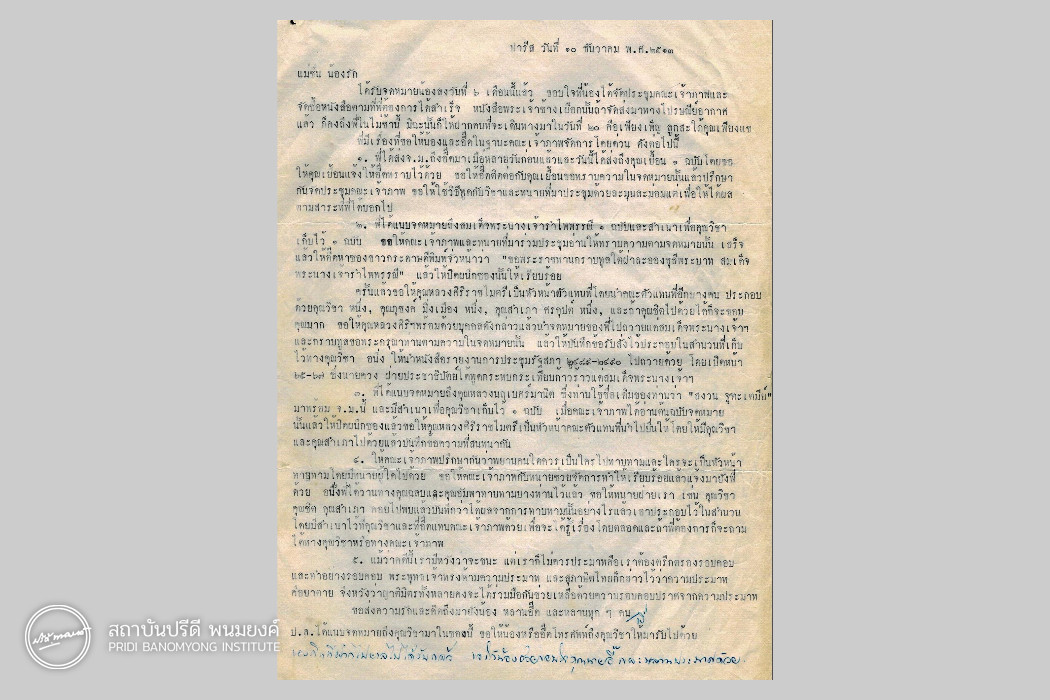 ปารีส วันที่ ๑๐ ธันวาคม พ.ศ.๒๕๑๓
แม่ชื่น น้องรัก
ได้รับจดหมายน้องลงวันที่ ๖ เดือนนี้แล้ว ขอบใจที่น้องได้จัดประชุมคณะเจ้าภาพและ
จัดซื้อหนังสือตามที่พี่ต้องการได้สำเร็จ หนังสือพระเจ้าช้างเผือกนั้นถ้าจัดส่งมาทางไปรษณีย์อากาศ
แล้ว ก็คงถึงพี่ในไม่ช้านี้ มิฉะนั้นก็ให้ฝากคนที่จะเดินทางมาในวันที่ ๒๐ คือเพียงเพ็ญ ลูกสะใภ้คุณเพียงแข
พี่มีเรื่องที่ขอให้น้องและอี๊ดในฐานะคณะเจ้าภาพจัดการโดยด่วน ดังต่อไปนี้
๑. พี่ได้ส่งจ.ม.ถึงอี๊ดมาเมื่อหลายวันก่อนแล้วและวันนี้ได้ส่งถึงคุณเยื้อน ๑ ฉบับโดยขอ
ให้คุณเยื้อนแจ้งให้อี๊ดทราบไว้ด้วย ขอให้อี๊ดติดต่อกับคุณเยื้อนขอทราบความในจดหมายนั้นแล้วปรึกษา
กับจัดประชุมคณะเจ้าภาพ ขอให้ใช้วิธีพูดกับวิชาและทนายที่มาประชุมด้วยละมุนละม่อมแต่เพื่อให้ได้ผล
ตามสาระที่พี่ได้บอกไป
๒. พี่ได้แนบจดหมายถึงสมเด็จพระนางเจ้ารำไพพรรณี ๑ ฉบับและสำเนาเพื่อคุณวิชา
เก็บไว้ ๑ ฉบับ ขอให้คณะเจ้าภาพและทนายที่มาร่วมประชุมอ่านให้ทราบความตามจดหมายนั้น เสร็จ
แล้วให้อี๊ดหาซองขาวกระดาษดีพิมพ์จ่าหน้าว่า "ขอพระราชทานกราบทูลใต้ฝ่าละอองธุลีพระบาท สมเด็จ
พระนางเจ้ารำไพพรรณี" แล้วให้ปิดผนึกซองนั้นให้เรียบร้อย
ครั้นแล้วขอให้คุณหลวงศิริราชไมตรีเป็นหัวหน้าตัวแทนพี่โดยนำคณะตัวแทนพี่อีกบางคน ประกอบ
ด้วยคุณวิชา หนึ่ง, คุณภุชงค์ มิ่งเมือง หนึ่ง, คุณสำเภา ศรอุปถ หนึ่ง, และถ้าคุณชิตไปด้วยได้ก็จะขอบ
คุณมาก ขอให้คุณหลวงศิริฯพร้อมด้วยบุคคลดังกล่าวแล้วนำจดหมายของพี่ไปถวายแด่สมเด็จพระนางเจ้าฯ
และกราบทูลขอพระกรุณาทานตามความในจดหมายนั้น แล้วให้บันทึกข้อรับสั่งไว้ประกอบในสำนวนที่เก็บ
ไว้ทางคุณวิชา อนึ่ง ให้นำหนังสือรายงานการประชุมรัฐสภา ๒๔๘๙-๒๔๙๐ ไปถวายด้วย โดยเปิดหน้า
๒๕-๖๗ ซึ่งนายควง ฝ่ายประชาธิปัตย์ได้พูดกระทบกระเทือนก้าวร้าวแด่สมเด็จพระนางเจ้าฯ
๓. พี่ได้แนบจดหมายถึงคุณหลวงนฤเบศร์มานิต ซึ่งท่านใช้ชื่อเดิมของท่านว่า "สงวน จูฑะเตมีย์"
มาพร้อม จ.ม.นี้ และมีสำเนาเพื่อคุณวิชาเก็บไว้ ๑ ฉบับ เมื่อคณะเจ้าภาพได้อ่านต้นฉบับจดหมาย
นั้นแล้วให้ปิดผนึกซองแล้วขอให้คุณหลวงศิริราชไมตรีเป็นหัวหน้าคณะตัวแทนพี่นำไปยื่นให้ โดยให้มีคุณวิชา
และคุณสำเภาไปด้วยแล้วบันทึกข้อความที่สนทนากัน
๔. ให้คณะเจ้าภาพปรึกษากันว่าพยานคนใดควรเป็นใครไปทาบทามและใครจะเป็นหัวหน้า
ทาบทามโดยมีทนายผู้ใดไปด้วย ขอให้คณะเจ้าภาพกับทนายช่วยจัดการทำให้เรียบร้อยแล้วแจ้งมายังพี่
ด้วย อนึ่งพี่ได้วานทางคุณฉลบและคุณอัมพาทาบทามบางท่านไว้แล้ว ขอให้ทนายฝ่ายเรา เช่น คุณวิชา
คุณชิต คุณสำเภา คอยไปพบแล้วบันทึกว่าได้ผลจากการทาบทามนั้นอย่างไรแล้วเอาประกอบไว้ในสำนวน
โดยมีสำเนาไว้ที่คุณวิชาและที่อี๊ดแทนคณะเจ้าภาพด้วยเพื่อจะได้รู้เรื่องโดยตลอดและถ้าพี่ต้องการก็จะถาม
ได้ทางคุณวิชาหรือทางคณะเจ้าภาพ
๕. แม้ว่าคดีนี้เรามีหวังว่าจะชนะ แต่เราก็ไม่ควรประมาทคือเราต้องตรึกตรองรอบคอบ
และทำอย่างรอบคอบ พระพุทธเจ้าทรงห้ามความประมาท และสุภาษิตไทยก็กล่าวไว้ว่าความประมาท
คือมาตาย จึงหวังว่าญาติมิตรทั้งหลายคงจะได้ร่วมมือกันช่วยเหลือด้วยความรอบคอบปราศจากความประมาท
ขอส่งความรักและคิดถึงมายังน้อง หลานอี๊ด และหลานทุก ๆ คน
ป.ล.ได้แนบจดหมายถึงคุณวิชามาในซองนี้ ขอให้น้องหรืออี๊ดโทรศัพท์ถึงคุณวิชาให้มารับไปด้วย
สถาบันปรีดี พนมยงค์
PRIDI BANOMYONG INSTITUTE